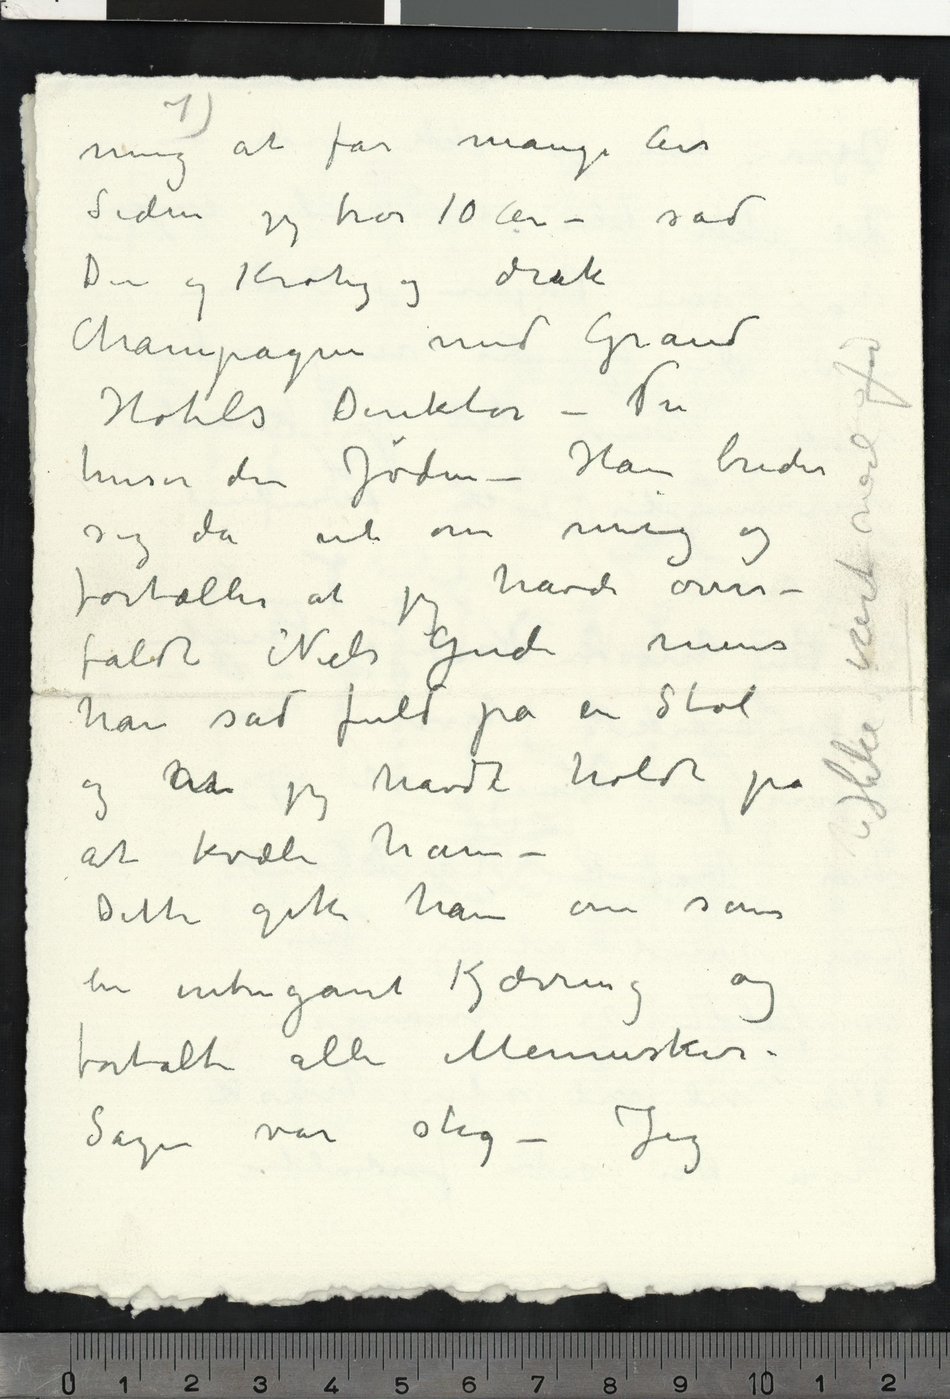 1)
mig at for mange Aar
Siden jeg tror 10 Aar – sad
Du og Krohg og drak
Champagne med Grand
Hotels Direktør – Du
huser den Jøden – Han breder
sig da ut om mig og
fortæller at jeg havde over-
faldt Niels Gude mens
han sad fuld på en Stol
og at jeg havde holdt på
at kvæle ham –
Dette gik han om som
en intrigant Kjærring og
fortalte alle Mennesker –
Sagen var slig – Jeg
Ikke vært med